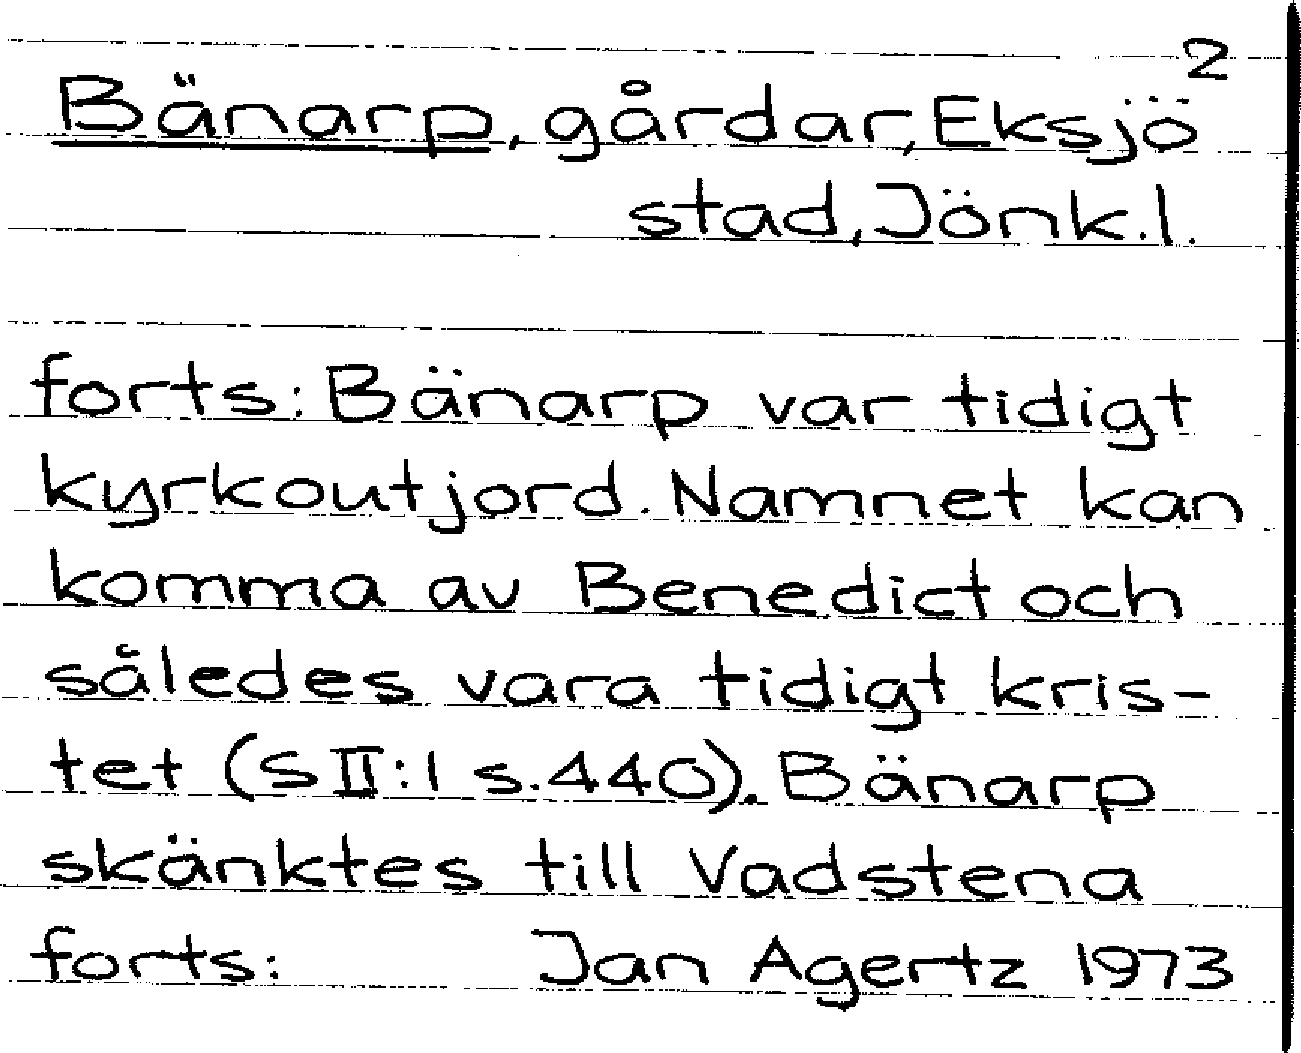 2
Bänarp, gårdar, Eksjö
stad, Jönk.l.
forts: Bänarp var tidigt
kyrkoutjord. Namnet kan
komma av Benedict och
således vara tidigt kris-
tet (S II:1 s.440). Bänarp
skänktes till Vadstena
forts: Jan Agertz 1973